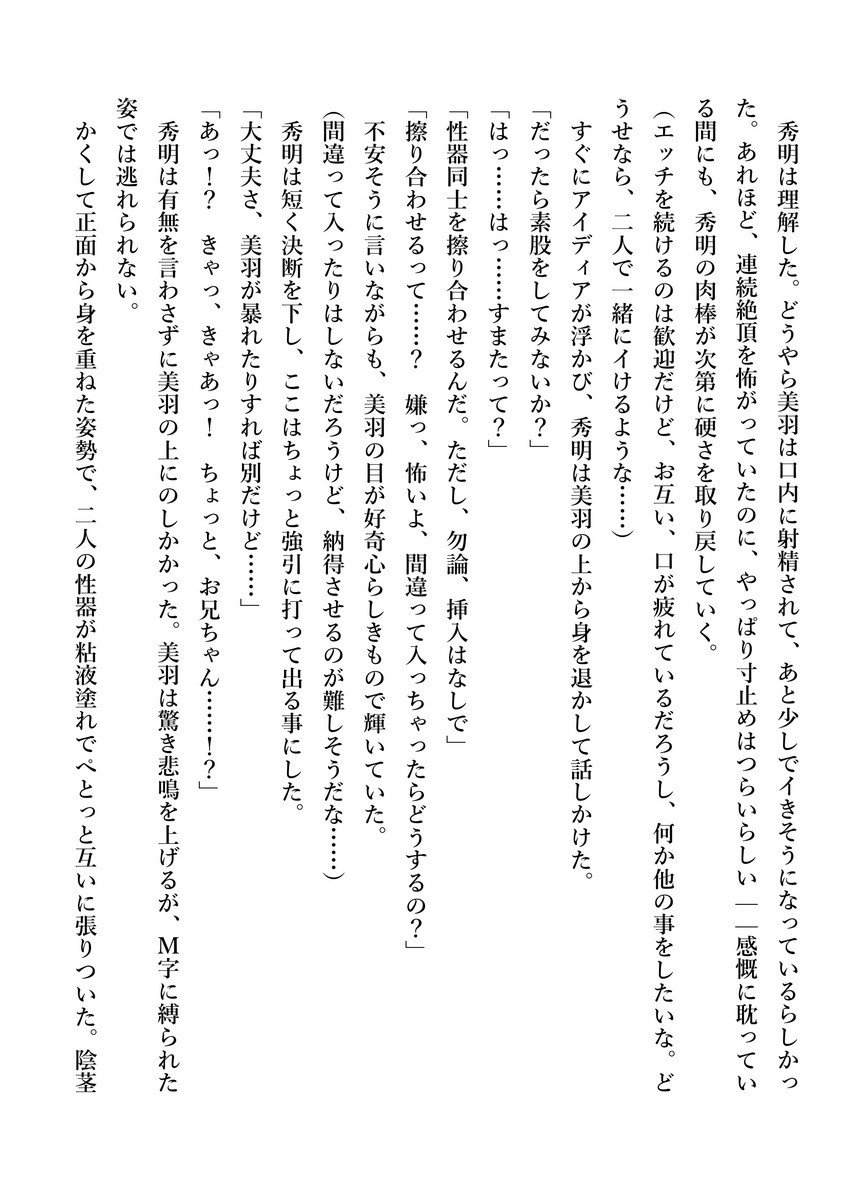 秀明は理解した。どうやら美羽は口内に射精されて、あと少しでイきそうになっているらしかっ
た。あれほど、連続絶頂を怖がっていたのに、やっぱり寸止めはつらいらしい――感慨に耽ってい
る間にも、秀明の肉棒が次第に硬さを取り戻していく。
（エッチを続けるのは歓迎だけど、お互い、口が疲れているだろうし、何か他の事をしたいな。ど
うせなら、二人で一緒にイけるような……）
　すぐにアイディアが浮かび、秀明は美羽の上から身を退かして話しかけた。
「だったら素股をしてみないか？」
「はっ……はっ……すまたって？」
「性器同士を擦り合わせるんだ。ただし、勿論、挿入はなしで」
「擦り合わせるって……？　嫌っ、怖いよ、間違って入っちゃったらどうするの？」
　不安そうに言いながらも、美羽の目が好奇心らしきもので輝いていた。
（間違って入ったりはしないだろうけど、納得させるのが難しそうだな……）
　秀明は短く決断を下し、ここはちょっと強引に打って出る事にした。
「大丈夫さ、美羽が暴れたりすれば別だけど……」
「あっ！？　きゃっ、きゃあっ！　ちょっと、お兄ちゃん……！？」
　秀明は有無を言わさずに美羽の上にのしかかった。美羽は驚き悲鳴を上げるが、Ｍ字に縛られた
姿では逃れられない。
　かくして正面から身を重ねた姿勢で、二人の性器が粘液塗れでぺとっと互いに張りついた。陰茎